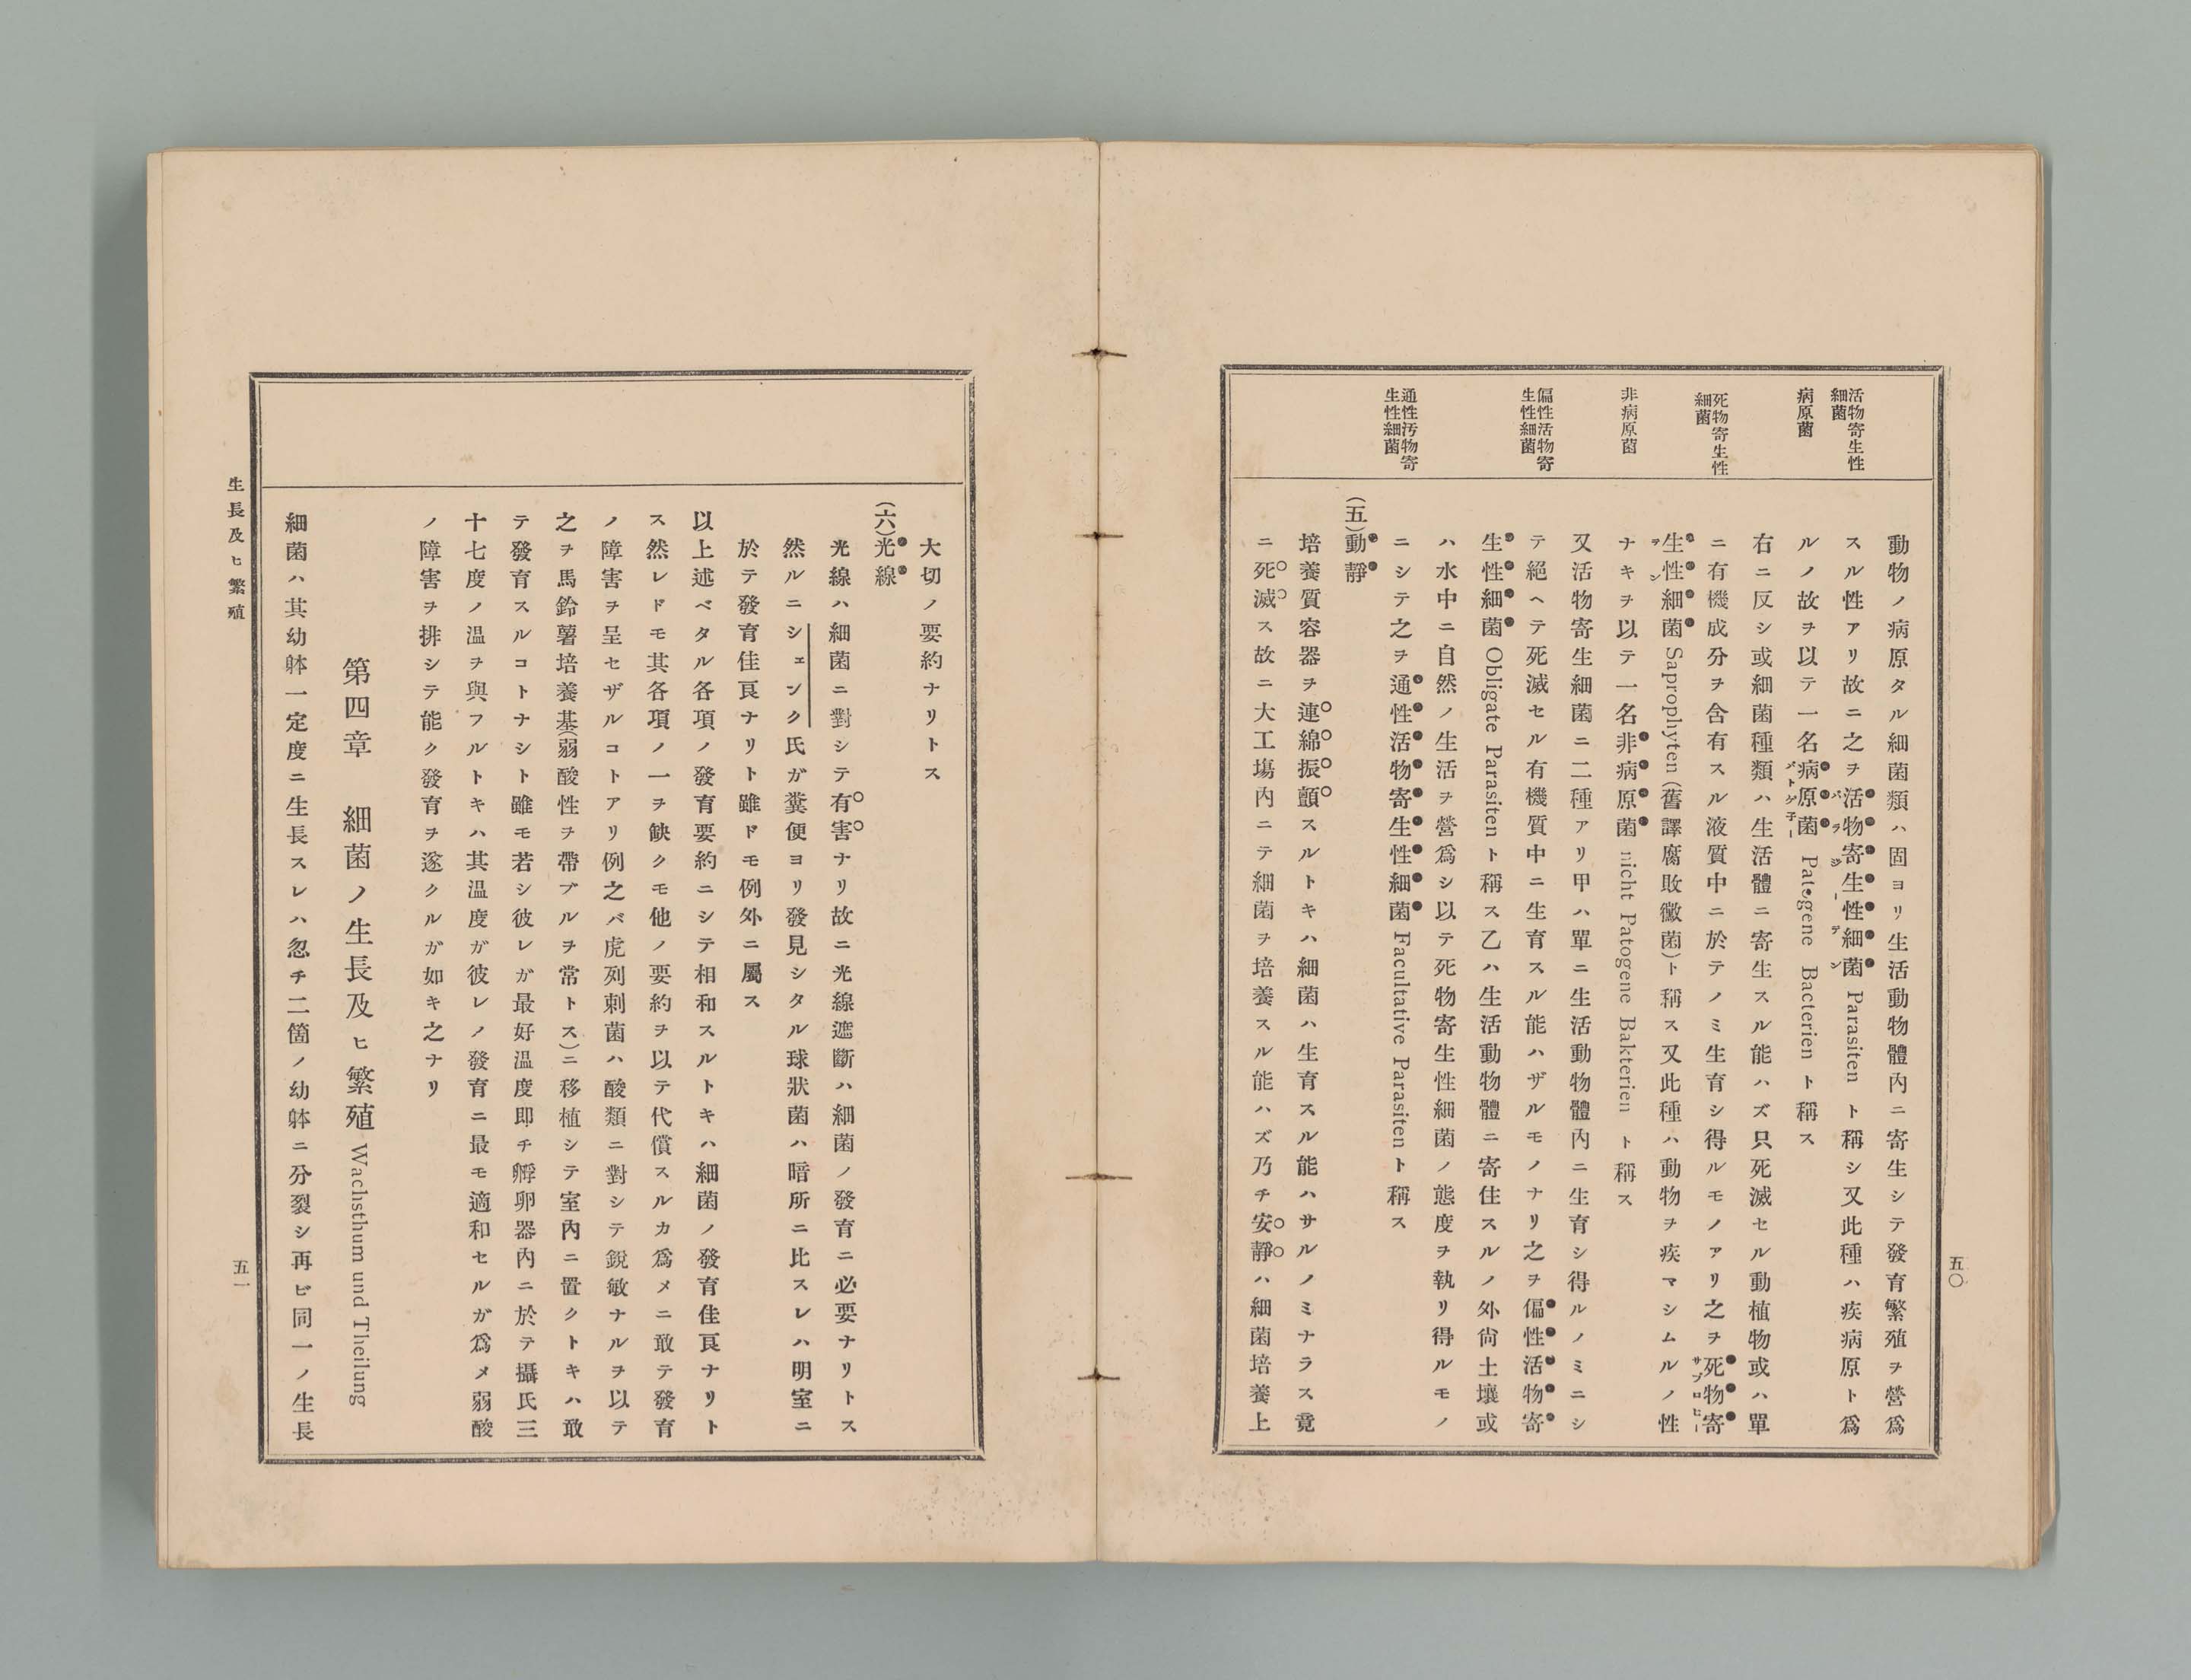 五〇
活物寄生性
細菌
病原菌
死物寄生性
細菌
非病原菌
偏性活物寄
生性細菌
通性汚物寄
生性細菌
動物ノ病原タル細菌類ハ固ヨリ生活動物體內ニ寄生シテ發育繁殖ヲ營爲
スル性アリ故ニ之ヲ活物寄生性細菌 Parasiten ト稱シ又此種ハ疾病原ト爲
ルノ故ヲ以テ一名病原菌 Patogene Bacterien ト稱ス
右ニ反シ或細菌種類ハ生活體ニ寄生スル能ハズ只死滅セル動植物或ハ單
ニ有機成分ヲ含有スル液質中ニ於テノミ生育シ得ルモノアリ之ヲ死物寄
生性細菌 Saprophyten (舊譯腐敗黴菌)ト稱ス又此種ハ動物ヲ疾マシムルノ性
ナキヲ以テ一名非病原菌 nicht Patogene Bakterien ト稱ス
又活物寄生細菌ニ二種アリ甲ハ單ニ生活動物體內ニ生育シ得ルノミニシ
テ絕ヘテ死滅セル有機質中ニ生育スル能ハザルモノナリ之ヲ偏性活物寄
生性細菌 Obligate Parasiten ト稱ス乙ハ生活動物體ニ寄住スルノ外尙土壤或
ハ水中ニ自然ノ生活ヲ營爲シ以テ死物寄生性細菌ノ態度ヲ執リ得ルモノ
ニシテ之ヲ通性活物寄生性細菌 Facultative Parasiten ト稱ス
(五)動靜
培養質容器ヲ連綿振顫スルトキハ細菌ハ生育スル能ハサルノミナラス竟
ニ死滅ス故ニ大工塲內ニテ細菌ヲ培養スル能ハズ乃チ安靜ハ細菌培養上
大切ノ要約ナリトス
(六)光線
光線ハ細菌ニ對シテ有害ナリ故ニ光線遮斷ハ細菌ノ發育ニ必要ナリトス
然ルニシェンク氏ガ糞便ヨリ發見シタル球狀菌ハ暗所ニ比スレハ明室ニ
於テ發育佳良ナリト雖ドモ例外ニ屬ス
以上述ベタル各項ノ發育要約ニシテ相和スルトキハ細菌ノ發育佳良ナリト
ス然レドモ其各項ノ一ヲ缺クモ他ノ要約ヲ以テ代償スルカ爲メニ敢テ發育
ノ障害ヲ呈セザルコトアリ例之バ虎列剌菌ハ酸類ニ對シテ銳敏ナルヲ以テ
之ヲ馬鈴薯培養基(弱酸性ヲ帶ブルヲ常トス)ニ移植シテ室內ニ置クトキハ敢
テ發育スルコトナシト雖モ若シ彼レガ最好溫度卽チ孵卵器內ニ於テ攝氏三
十七度ノ溫ヲ與フルトキハ其溫度ガ彼レノ發育ニ最モ適和セルガ爲メ弱酸
ノ障害ヲ排シテ能ク發育ヲ遂クルガ如キ之ナリ
第四章 細菌ノ生長及ヒ繁殖 Wachsthum und Theilung
細菌ハ其幼躰一定度ニ生長スレハ忽チ二箇ノ幼躰ニ分裂シ再ビ同一ノ生長
生長及ヒ繁殖
五一